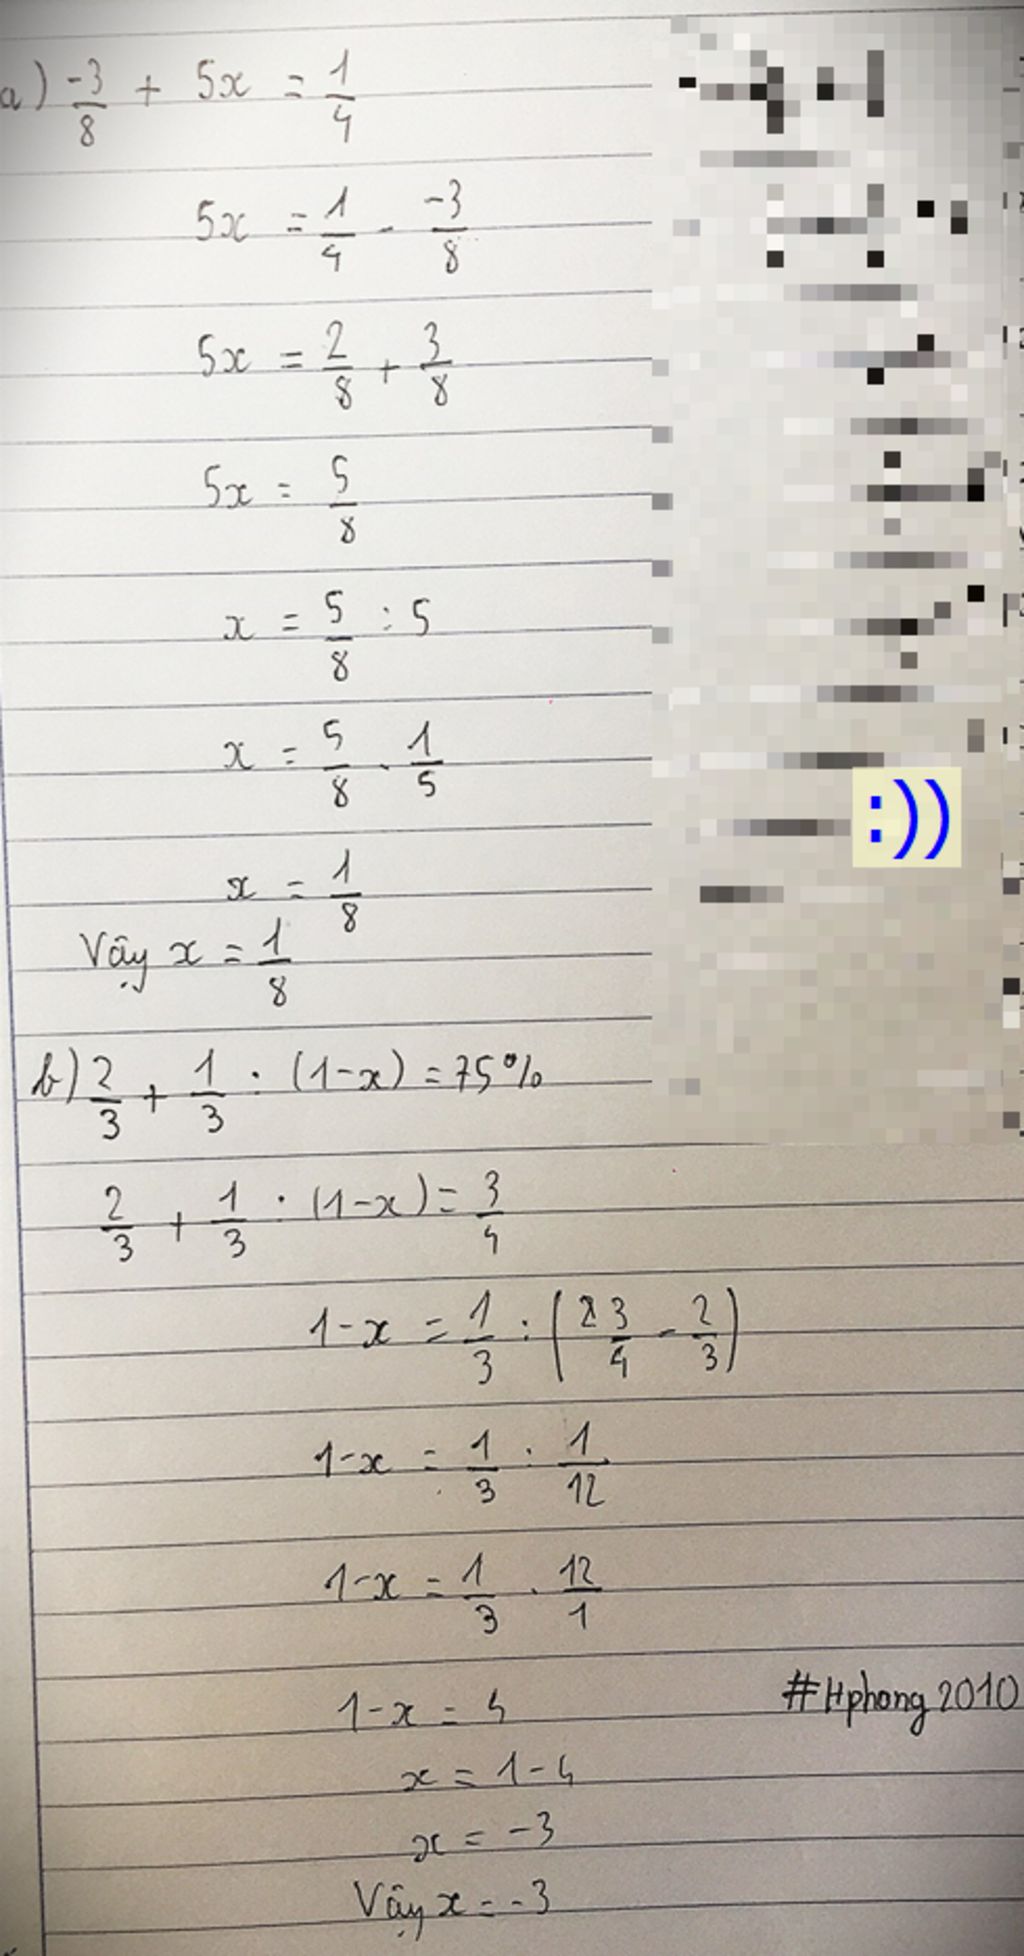 a) -3/8 + 5x = 1/4
5x = 1/4 - -3/8
5x = 2/8 + 3/8
5x = 5/8
x = 5/8 : 5
x = 5/8 . 1/5
:))
x = 1/8
Vậy x = 1/8
b) 2/3 + 1/3 : (1-x) = 75%
2/3 + 1/3 : (1-x) = 3/4
1-x = 1/3 : (3/4 - 2/3)
1-x = 1/3 : 1/12
1-x = 1/3 . 12/1
1-x = 4
#Hphong2010
x = 1-4
x = -3
Vậy x = -3